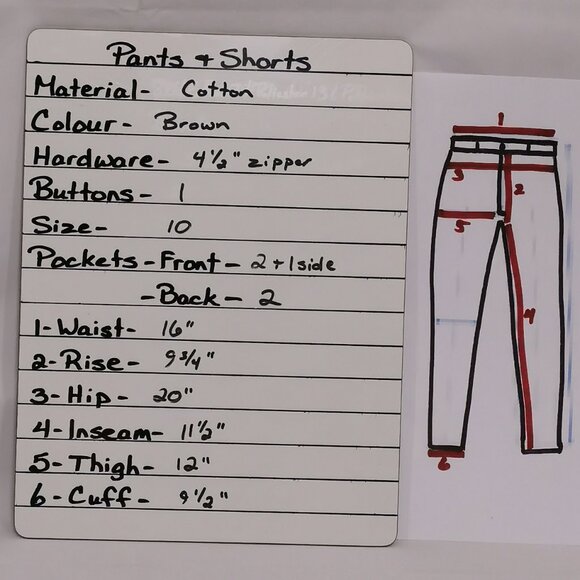 Pants + Shorts
Material- Cotton
Colour- Brown
Hardware- 4½" zipper
Buttons- 1
Size- 10
Pockets-Front- 2 + 1 side
-Back- 2
1-Waist- 16"
2-Rise- 9 3/4"
3-Hip- 20"
4-Inseam- 11½"
5-Thigh- 12"
6-Cuff- 9½"
1
3
2
5
4
6